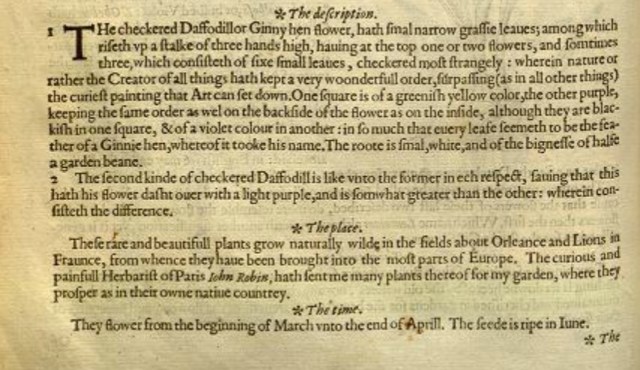 ✻ The description.
1 THe checkered Daffodill or Ginny hen flower, hath smal narrow grassie leaues; among which
riseth vp a stalke of three hands high, hauing at the top one or two flowers, and somtimes
three, which consisteth of sixe small leaues, checkered most strangely: wherein nature or
rather the Creator of all things hath kept a very woonderfull order, surpassing (as in all other things)
the curiest painting that Art can set down. One square is of a greenish yellow color, the other purple,
keeping the same order as wel on the backside of the flower as on the inside, although they are blac-
kish in one square, & of a violet colour in another: in so much that euery leafe seemeth to be the fea-
ther of a Ginnie hen, whereof it tooke his name. The roote is smal, white, and of the bignesse of halfe
a garden beane.
2 The second kinde of checkered Daffodill is like vnto the former in ech respect, sauing that this
hath his flower dasht ouer with a light purple, and is somwhat greater than the other: wherein con-
sisteth the difference.
✻ The place.
These rare and beautifull plants grow naturally wilde in the fields about Orleance and Lions in
Fraunce, from whence they haue been brought into the most parts of Europe. The curious and
painfull Herbarist of Paris Iohn Robin, hath sent me many plants thereof for my garden, where they
prosper as in their owne natiue countrey.
✻ The time.
They flower from the beginning of March vnto the end of Aprill. The seede is ripe in Iune.
✻ The